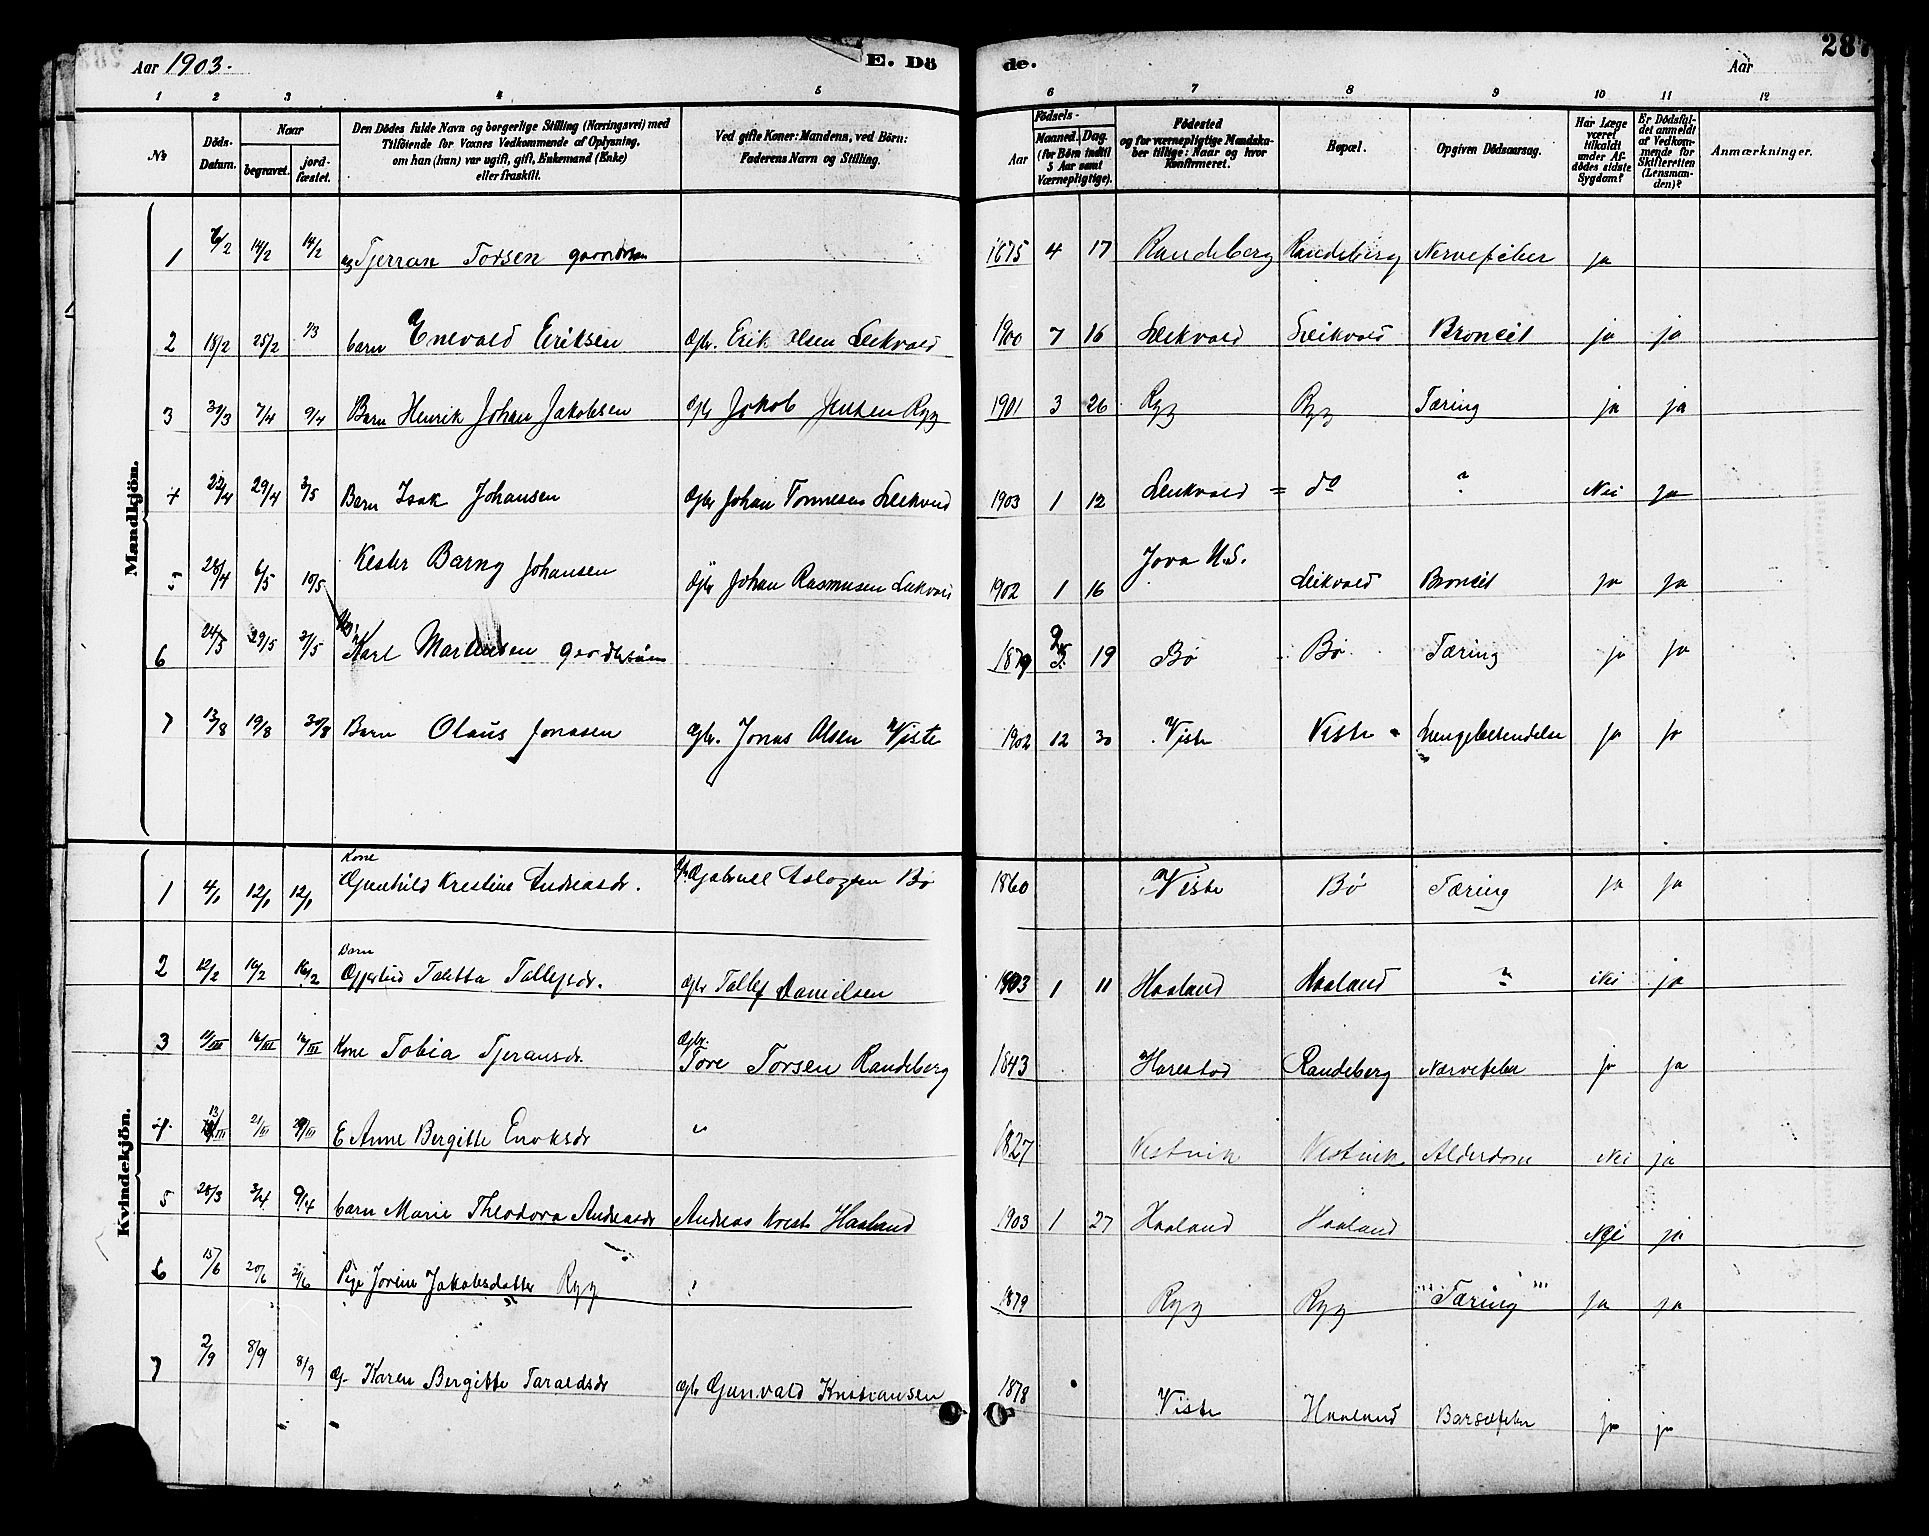 Aar 1903.
E. Dö
de.
Aar
287
1 2 3 4 5 6 7 8 9 10 11 12
No
Döds-Datum.
Naar
begravet.
jord-fæstet.
Den Dödes fulde Navn og borgerlige Stilling (Næringsvei) med
Tilföiende for Voxnes Vedkommende af Oplysning,
om han (hun) var ugift, gift, Enkemand (Enke)
eller fraskilt.
Ved gifte Koner: Mandens, ved Börn:
Faderens Navn og Stilling.
Födsels-
Aar
Maaned. Dag.
(for Börn indtil
5 Aar samt
Værnepligtige).
Födested
og for værnepligtige Mandska-
ber tillige: Naar og hvor
Konfirmeret.
Bopæl.
Opgiven Dödsaarsag.
Har Læge
været
tilkaldt
under Af-
dödes sidste
Sygdom?
Er Dödsfal-
det anmeldt
af Vedkom-
mende for
Skifteretten
(Lensman-
den)?
Anmærkninger.
Mandkjön.
1 6/2 14/2 14/2 ug Tjerran Torsen 1875 4 17 Randeberg Randeberg Nervefeber ja
2 18/2 25/2 1/3 barn Enevald Eriksen Gbr. Erik Olsen Leikvold 1900 7 16 Leikvold Leikvold Broncit ja ja
3 30/3 7/4 9/4 Barn Henrik Johan Jakobsen Gbr Jakob Jensen Ryg 1901 3 26 Ryg Ryg Tæring ja ja
4 22/4 29/4 3/5 Barn Isak Johansen Gbr Johan Tonnesen Leikvold 1903 1 12 Leikvold = do ? Nei ja
5 28/4 6/5 10/5 Kester Barny Johansen Gbr Johan Rasmusen Leikvold 1902 1 16 Jova U.S. Leikvold Broncit ja ja
6 24/5 29/5 31/5 Ug. Karl Martinsen gaardbrsøn 1879 19 Bø Bø Tæring ja ja
7 13/8 19/8 30/8 Barn Olaus Jonasen Gbr. Jonas Olsen Viste 1902 12 30 Viste Viste Lungebetendelse ja ja
Kvindekjön.
1 4/1 12/1 12/1 Kone Gunhild Kristine Andreasdr. Gbr. Gabriell Aslagsen Bø 1860 Viste Bø Tæring ja ja
2 12/2 16/2 16/2 Barn Taletta Tallefsdr. Gbr Tallef Danielsen 1903 1 11 Haaland Haaland ? Nei ja
3 11/III 16/III 16/III Kone Tobia Tjeransdr. Gbr. Tore Torsen Randeberg 1843 Harestad Randeberg Nervefeber ja ja
4 13/III 21/III 29/III E Anne Bergitte Enoksdr " 1827 Vestvik Vestvik Alderdom Nei ja
5 28/3 3/4 9/4 barn Marie Theodora Andreasdr Andreas Krist Haaland 1903 1 27 Haaland Haaland Nei ja
6 15/6 20/6 21/6 Pige Jorine Jakobsdatter Ryg 1879 Ryg Ryg "Tæring" ja ja
7 2/9 8/9 8/9 G. Karen Bergitte Taraldsdr Gbr Gunvald Kristiansen 1878 Viste Haaland Barselfeber ja ja